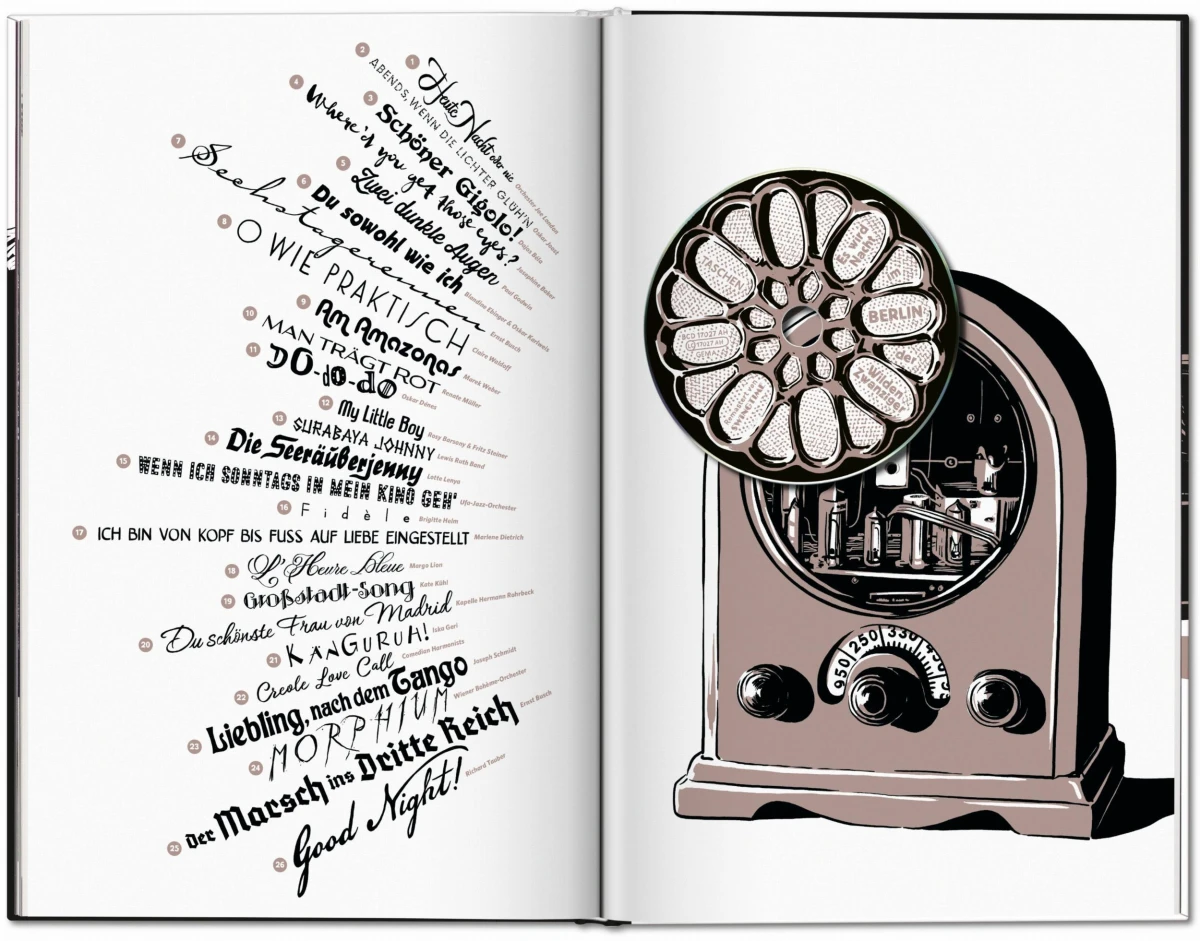 1 Heute Nacht oder nie Orchester Joe London
2 ABENDS, WENN DIE LICHTER GLÜH'N Oskar Joost
3 Schöner Gigolo! Dajos Béla
4 Where'd you get those eyes? Josephine Baker
5 Zwei dunkle Augen Paul Godwin
6 Du sowohl wie ich Blandine Ebinger & Oskar Karlweis
7 Sechstagerennen Ernst Busch
8 O WIE PRAKTISCH Claire Waldoff
9 Am Amazonas Marek Weber
10 MAN TRÄGT ROT Renate Müller
11 DO-do-do Oskar Dénes
12 My Little Boy Rosy Barsony & Fritz Steiner
13 SURABAYA JOHNNY Lewis Ruth Band
14 Die Seeräuberjenny Lotte Lenya
15 WENN ICH SONNTAGS IN MEIN KINO GEH' Ufa-Jazz-Orchester
16 Fidèle Brigitte Helm
17 ICH BIN VON KOPF BIS FUSS AUF LIEBE EINGESTELLT Marlene Dietrich
18 L'Heure Bleue Margo Lion
19 Großstadt-Song Kate Kühl
20 Du schönste Frau von Madrid Kapelle Hermann Rohrbeck
21 KÄNGURUH! Iska Geri
22 Creole Love Call Comedian Harmonists
23 Liebling, nach dem Tango Joseph Schmidt
24 MORPHIUM Wiener Bohème-Orchester
25 Der Marsch ins Dritte Reich Ernst Busch
26 Good Night! Richard Tauber
Es wird
Nacht
im
BERLIN
der
Wilden
Zwanziger
TASCHEN
BCD 17027 AH
LC 17027 AH
GEMA
950 250 330